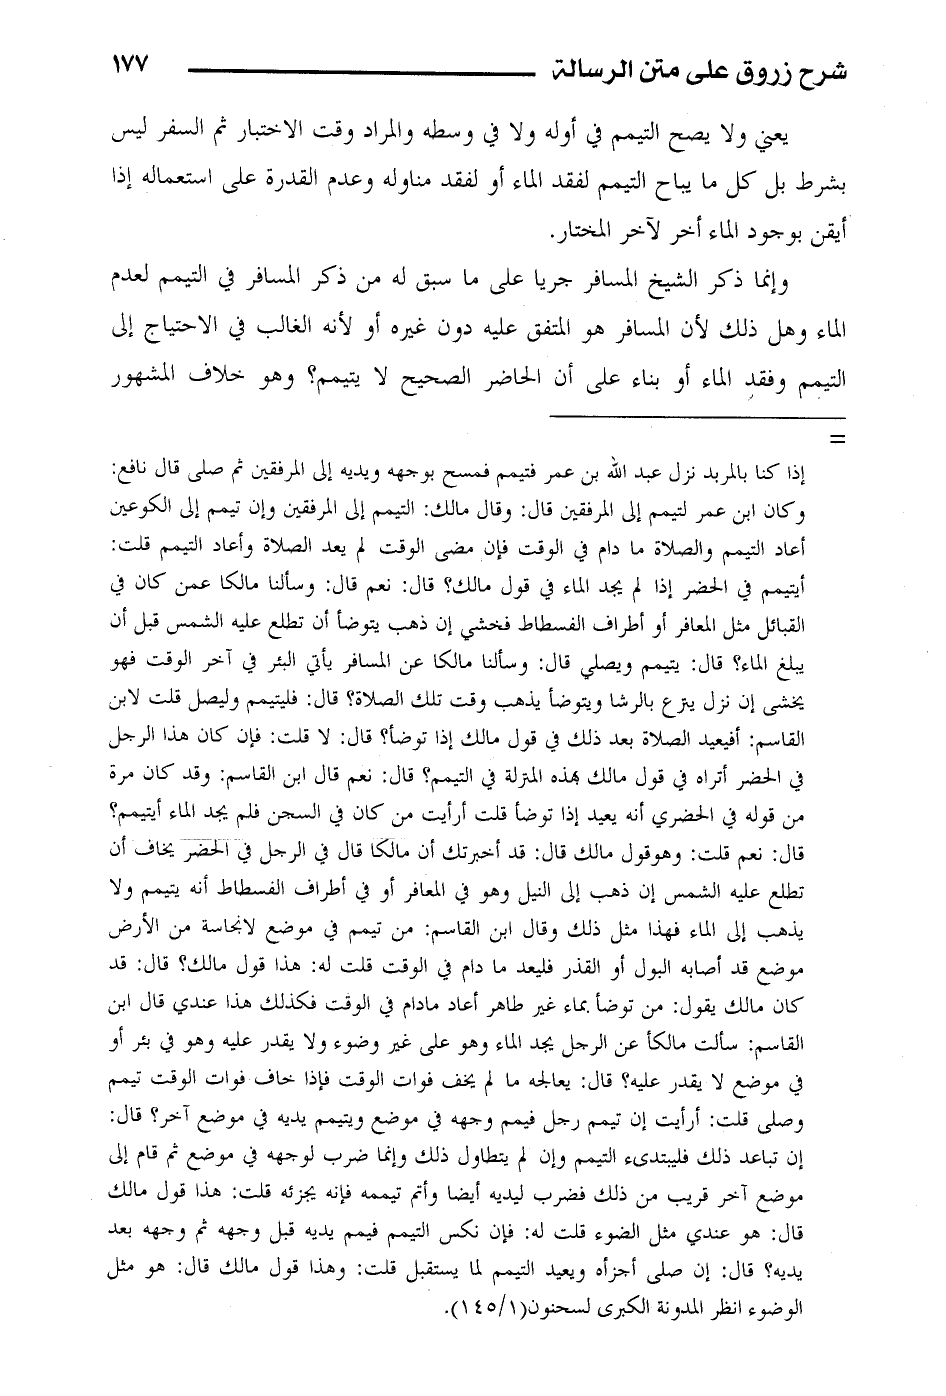 شرح زروق على متن الرسالة ١٧٧
يعني ولا يصح التيمم في أوله ولا في وسطه والمراد وقت الاختبار ثم السفر ليس
بشرط بل كل ما يباح التيمم لفقد الماء أو لفقد مناوله وعدم القدرة على استعماله إذا
أيقن بوجود الماء أخر لآخر المختار.
وإنما ذكر الشيخ المسافر جريا على ما سبق له من ذكر المسافر في التيمم لعدم
الماء وهل ذلك لأن المسافر هو المتفق عليه دون غيره أو لأنه الغالب في الاحتياج إلى
التيمم وفقد الماء أو بناء على أن الحاضر الصحيح لا يتيمم؟ وهو خلاف المشهور
=
إذا كنا بالمربد نزل عبد الله بن عمر فتيمم فمسح بوجهه ويديه إلى المرفقين ثم صلى قال نافع:
وكان ابن عمر لتيمم إلى المرفقين قال: وقال مالك: التيمم إلى المرفقين وإن تيمم إلى الكوعين
أعاد التيمم والصلاة ما دام في الوقت فإن مضى الوقت لم يعد الصلاة وأعاد التيمم قلت:
أيتيمم في الحضر إذا لم يجد الماء في قول مالك؟ قال: نعم قال: وسألنا مالكا عمن كان في
القبائل مثل المعافر أو أطراف الفسطاط فخشي إن ذهب يتوضأ أن تطلع عليه الشمس قبل أن
يبلغ الماء؟ قال: يتيمم ويصلي قال: وسألنا مالكا عن المسافر يأتي البئر في آخر الوقت فهو
يخشى إن نزل ينزع بالرشا ويتوضأ يذهب وقت تلك الصلاة؟ قال: فليتيمم وليصل قلت لابن
القاسم: أفيعيد الصلاة بعد ذلك في قول مالك إذا توضأ؟ قال: لا قلت: فإن كان هذا الرجل
في الحضر أتراه في قول مالك بهذه المنزلة في التيمم؟ قال: نعم قال ابن القاسم: وقد كان مرة
من قوله في الحضري أنه يعيد إذا توضأ قلت أرأيت من كان في السجن فلم يجد الماء أيتيمم؟
قال: نعم قلت: وهوقول مالك قال: قد أخبرتك أن مالكا قال في الرجل في الحضر يخاف أن
تطلع عليه الشمس إن ذهب إلى النيل وهو في المعافر أو في أطراف الفسطاط أنه يتيمم ولا
يذهب إلى الماء فهذا مثل ذلك وقال ابن القاسم: من تيمم في موضع لانجاسة من الأرض
موضع قد أصابه البول أو القذر فليعد ما دام في الوقت قلت له: هذا قول مالك؟ قال: قد
كان مالك يقول: من توضأ بماء غير طاهر أعاد مادام في الوقت فكذلك هذا عندي قال ابن
القاسم: سألت مالكأ عن الرجل يجد الماء وهو على غير وضوء ولا يقدر عليه وهو في بئر أو
في موضع لا يقدر عليه؟ قال: يعالجه ما لم يخف فوات الوقت فإذا خاف فوات الوقت تيمم
وصلى قلت: أرأيت إن تيمم رجل فيمم وجهه في موضع ويتيمم يديه في موضع آخر؟ قال:
إن تباعد ذلك فليبتدىء التيمم وإن لم يتطاول ذلك وإنما ضرب لوجهه في موضع ثم قام إلى
موضع آخر قريب من ذلك فضرب ليديه أيضا وأتم تيممه فإنه يجزئه قلت: هذا قول مالك
قال: هو عندي مثل الضوء قلت له: فإن نكس التيمم فيمم يديه قبل وجهه ثم وجهه بعد
يديه؟ قال: إن صلى أجزأه ويعيد التيمم لما يستقبل قلت: وهذا قول مالك قال: هو مثل
الوضوء انظر المدونة الكبرى لسحنون(١٤٥/١).